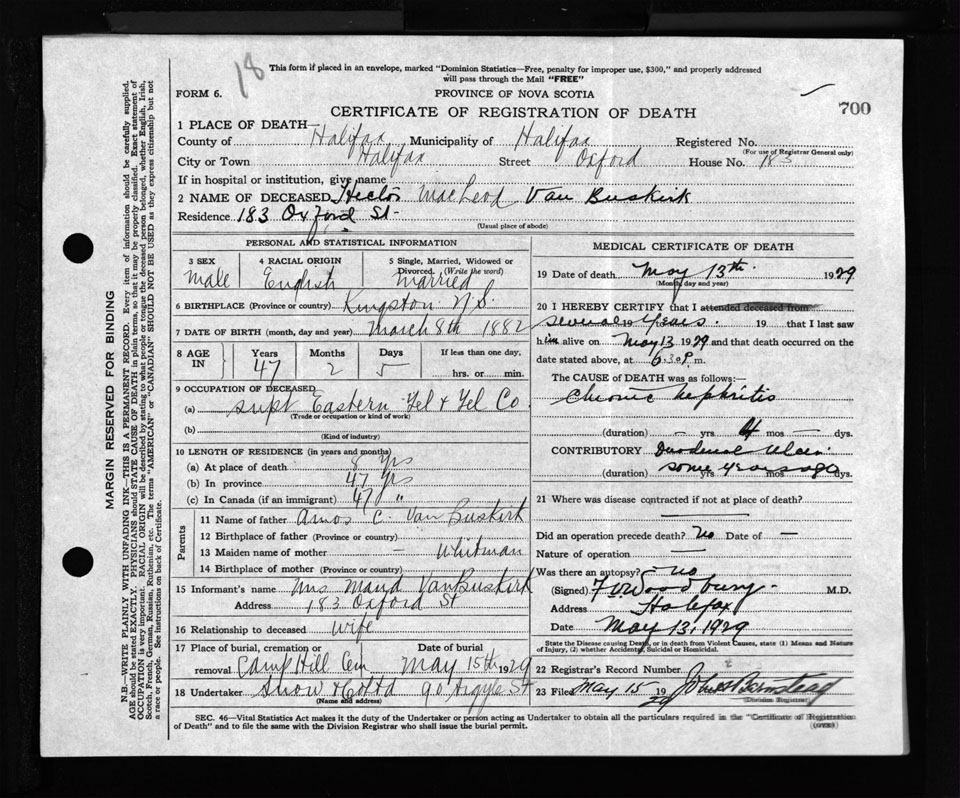 18
This form if placed in an envelope, marked "Dominion Statistics—Free, penalty for improper use, $300," and properly addressed
will pass through the Mail "FREE"
FORM 6.
PROVINCE OF NOVA SCOTIA
700
CERTIFICATE OF REGISTRATION OF DEATH
1 PLACE OF DEATH—
County of Halifax Municipality of Halifax Registered No.
(For use of Registrar General only)
City or Town Halifax Street Oxford House No. 183
If in hospital or institution, give name
2 NAME OF DECEASED Hector MacLeod Van Buskirk
Residence 183 Oxford St-
(Usual place of abode)
PERSONAL AND STATISTICAL INFORMATION
3 SEX
male
4 RACIAL ORIGIN
English
5 Single, Married, Widowed or
Divorced. (Write the word)
married
6 BIRTHPLACE (Province or country) Kingston N.S.
7 DATE OF BIRTH (month, day and year) March 8th 1882
8 AGE IN
Years Months Days If less than one day,
47 2 5 hrs. or min.
9 OCCUPATION OF DECEASED
(a) supt Eastern Tel & Tel Co.
(Trade or occupation or kind of work)
(b)
(Kind of industry)
10 LENGTH OF RESIDENCE (in years and months)
(a) At place of death 8 yrs
(b) In province 47 yrs
(c) In Canada (if an immigrant) 47 "
Parents
11 Name of father Amos C. Van Buskirk
12 Birthplace of father (Province or country)
13 Maiden name of mother — Whitman
14 Birthplace of mother (Province or country)
15 Informant's name Mrs Maud VanBuskirk
Address 183 Oxford St
16 Relationship to deceased wife
17 Place of burial, cremation or removal Camp Hill Cem
Date of burial
May 15th 1929
18 Undertaker Snow & Co Ltd 90 Argyle St
(Name and address)
MEDICAL CERTIFICATE OF DEATH
19 Date of death May 13th. 1929
(Month, day and year)
20 I HEREBY CERTIFY that I attended deceased from
several 19 years. 19 that I last saw
him alive on May 13 1929 and that death occurred on the
date stated above, at 6.30 P. m.
The CAUSE of DEATH was as follows:
Chronic nephritis
(duration) — yrs 4 mos — dys.
CONTRIBUTORY Duodenal ulcer
(duration) some years ago mos dys.
21 Where was disease contracted if not at place of death?
Did an operation precede death? No Date of —
Nature of operation —
Was there an autopsy? no
(Signed) M.D.
Address Halifax
Date May 13, 1929
State the Disease causing Death, or in death from Violent Causes, state (1) Means and Nature
of Injury, (2) whether Accidental, Suicidal or Homicidal.
22 Registrar's Record Number
23 Filed May 15 1929
(Division Registrar)
SEC. 46—Vital Statistics Act makes it the duty of the Undertaker or person acting as Undertaker to obtain all the particulars required in the "Certificate of Registration
of Death" and to file the same with the Division Registrar who shall issue the burial permit.
(OVER)
MARGIN RESERVED FOR BINDING
N.B.—WRITE PLAINLY WITH UNFADING INK—THIS IS A PERMANENT RECORD. Every item of information should be carefully supplied.
AGE should be stated EXACTLY. PHYSICIANS should STATE CAUSE OF DEATH in plain terms, so that it may be properly classified. Exact statement of
OCCUPATION is very important. RACIAL ORIGIN will be described by stating to what people or tongue the deceased person belonged, whether English, Irish,
Scotch, French, German, Russian, Ruthenian, etc. The terms "AMERICAN" or "CANADIAN" SHOULD NOT BE USED as they express citizenship but not
a race or people. See instructions on back of Certificate.